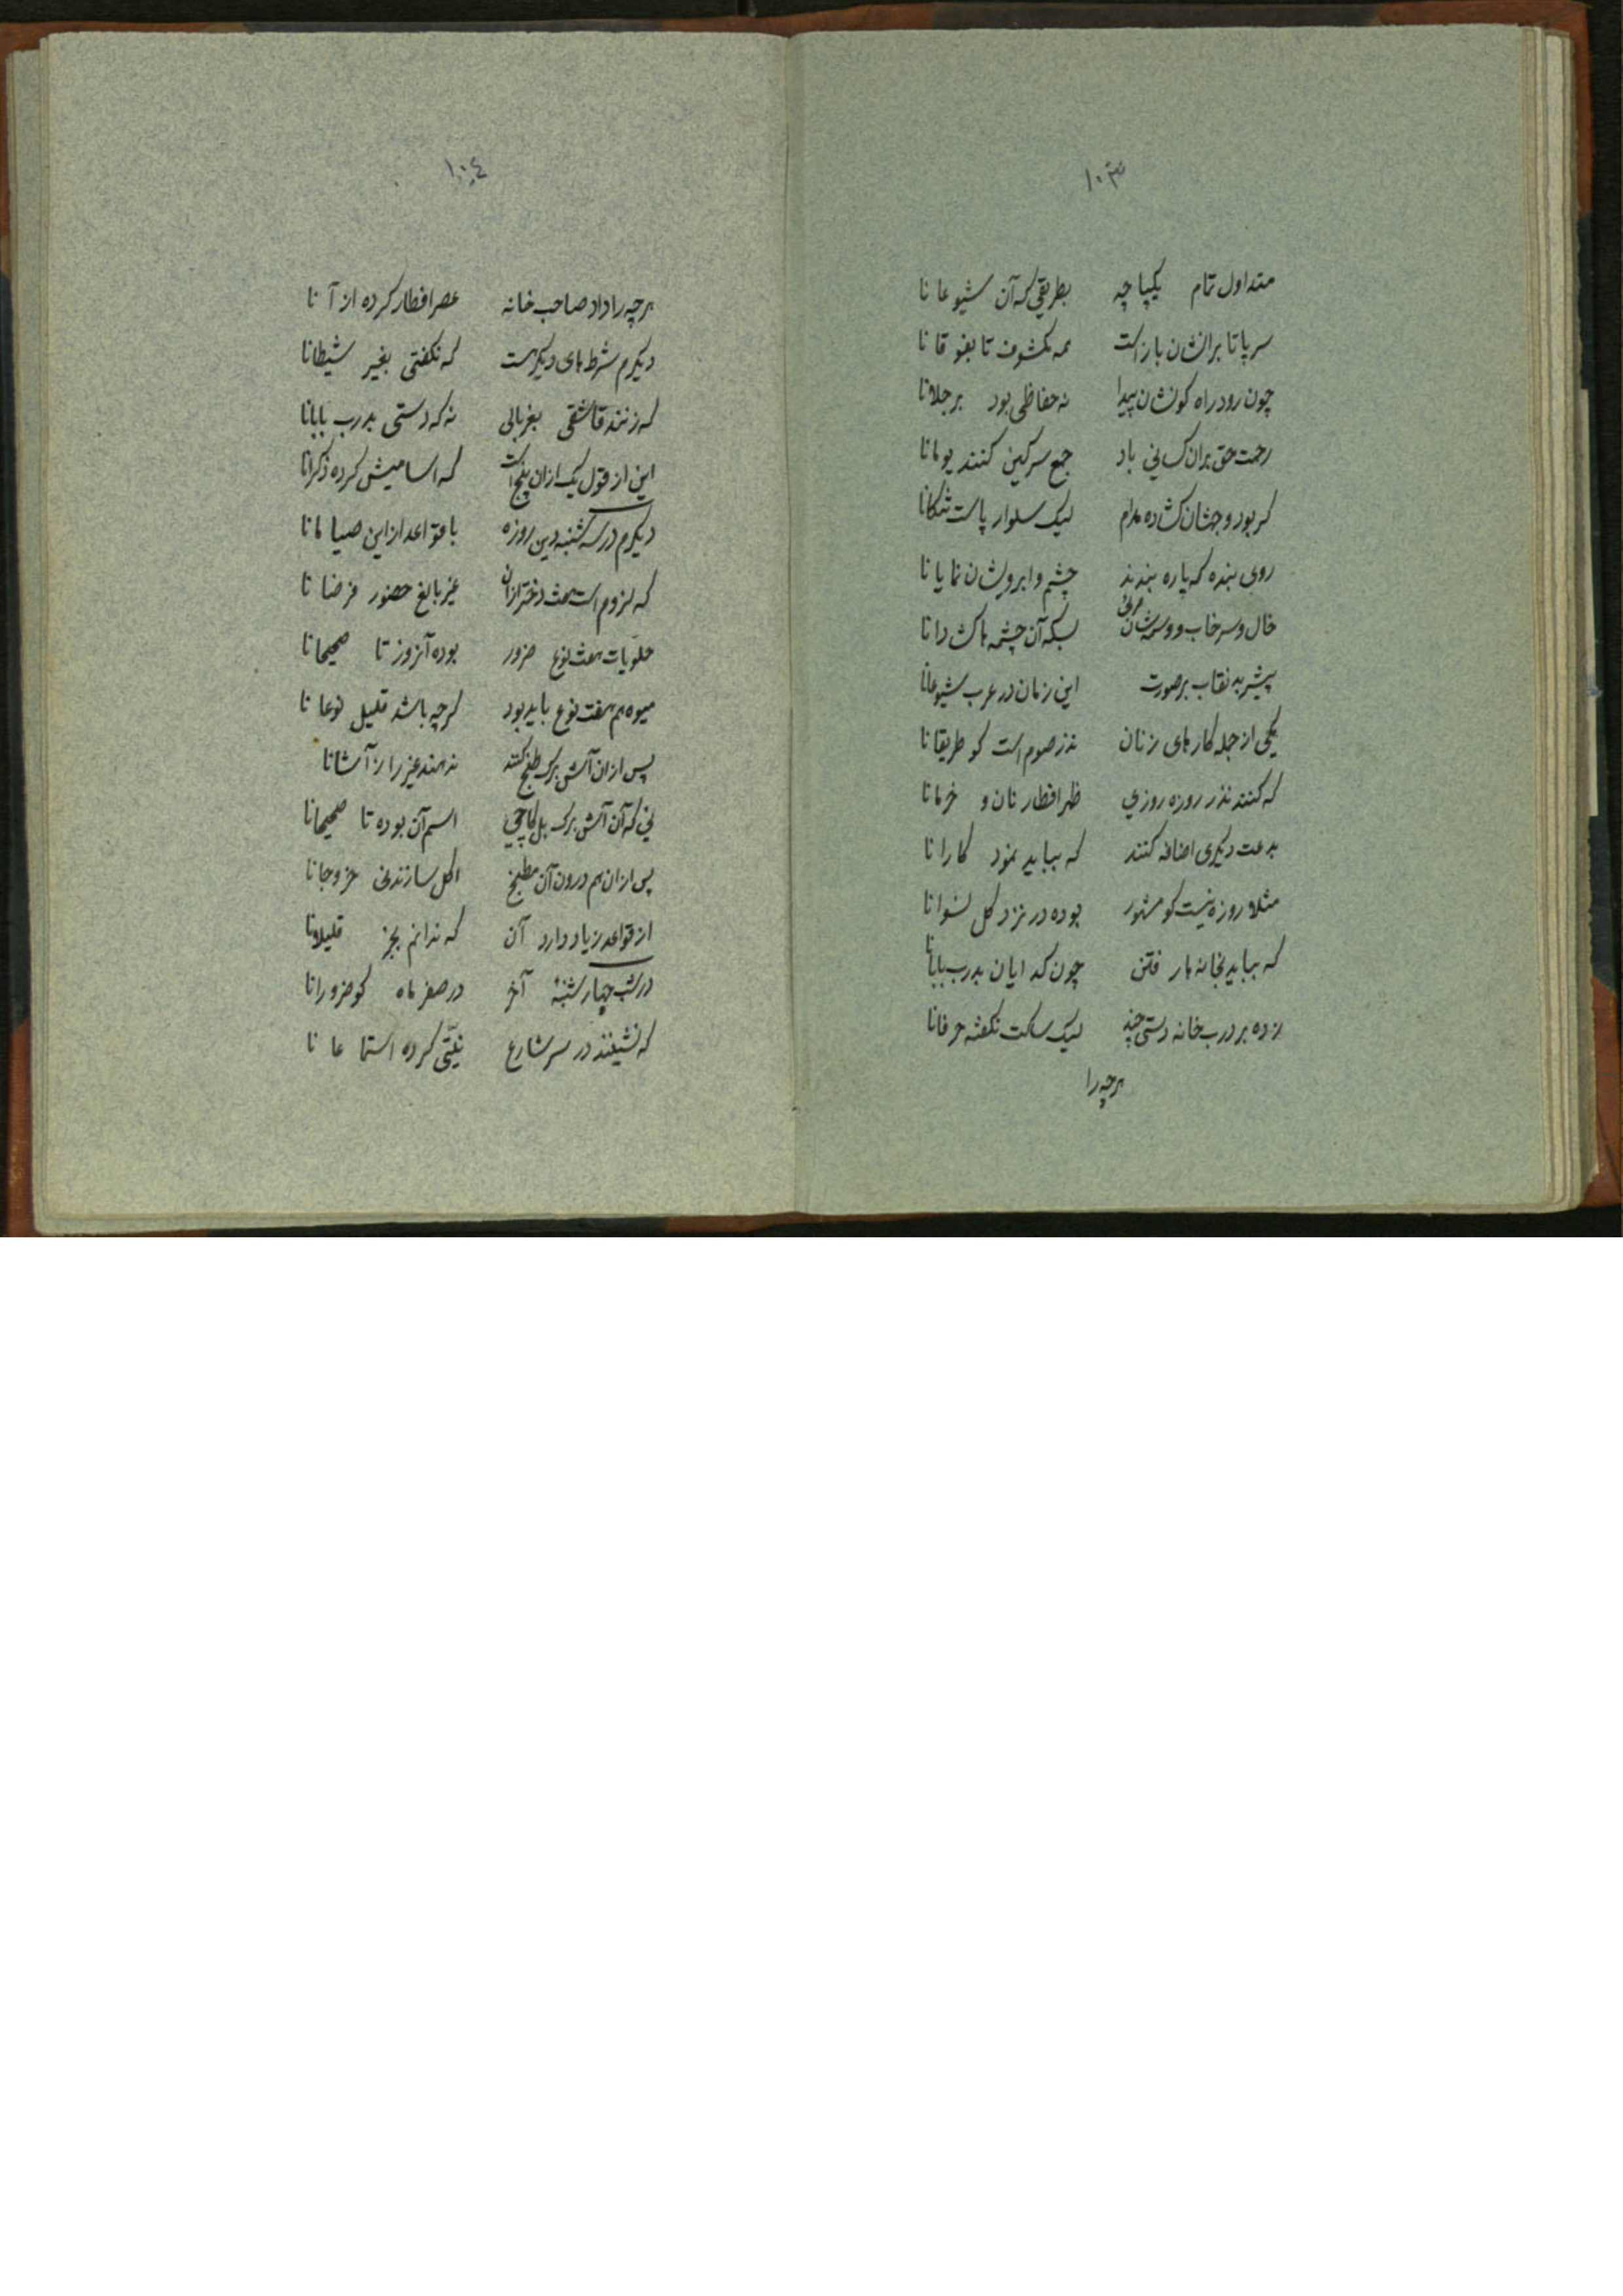 ۱۰۳
متداول تمام یکپاچه بطریقی که آن شیوعا نا
سر پا تا برانشان بازاست همه مکشوف تا بفوقا نا
چون رود راه کونشان پیدا نه حفاظی بود برجلانا
رحمت حق بران کسانی باد جمع سرکین کنند یومانا
کر بود وجهشان کشاده مدام لیک سلوار پاست تنکانا
روی بنده که پاره بندند چشم وابروشان نمایانا
خال وسرخاب و وسمشان بسکه آن چشمها کشادانا
پیشر به نقاب برصورت این زمان در عرب شیوعانا
یکی از جمله کارهای زنان نذر صوم است کو طریقانا
که کنند نذر روزه روزی ظهر افطار نان و خرمانا
بدعت دیکری اضافه کنند که بباید نمود کارانا
مثلا روزه نیست کو مشهور بوده در نزد کل نسوانا
که بباید بخانها رفتن چون کدایان بدرب بابانا
زده بر درب خانه دستی چند لیک ساکت نکفته حرفانا
هرچه را
۱۰۴
هرچه را داد صاحب خانه عصر افطار کرده از آنا
دیکرم شرطهای دیکر هست که نکفتی بغیر شیطانا
که زنند قاشقی بغربالی نه که دستی بدرب بابانا
این از قول یک ازان پنج است که اسامیش کرده ذکرانا
دیکرم در سه شنبه دین روزه با قواعد از این صیامانا
که لزوم است هفت دختر ازان غیر بالغ حضور فرضانا
حلویات هفت نوع ضرور بوده آنروز تا صحیحانا
میوه هم هفت نوع باید بود کرچه باشد قلیل نوعانا
پس ازان آش برک طبخ کنند ندهند غیر را ز آشانا
نی که آن آش برک بل کاچی اسم آن بوده تا صحیحانا
پس ازان هم درون آن مطبخ اکل سازند نی خروجانا
از قواعد زیاد دارد آن که ندانم بجز قلیلانا
در شب چهارشنبه آخر در صفر ماه کو ضرورانا
که نشینند در سر شارع نیتی کرده استماعا نا